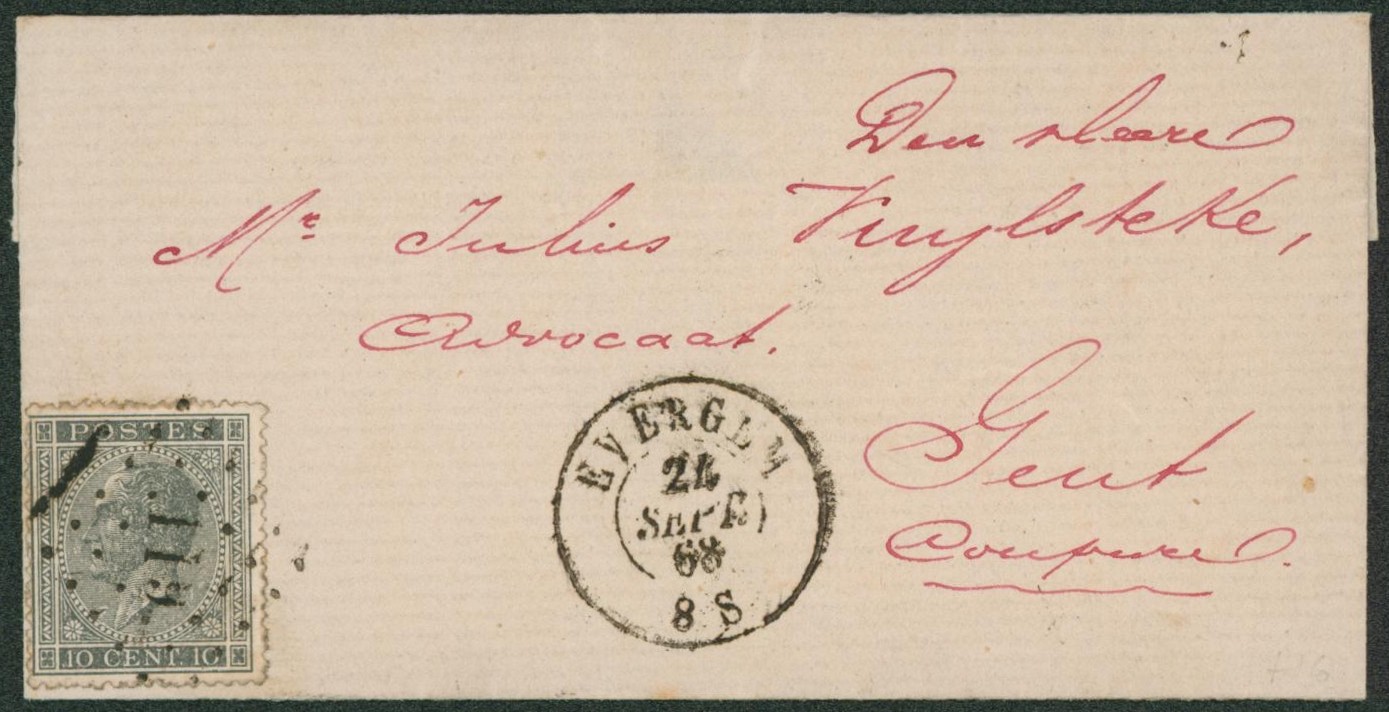 Den Heere
Mr Julius Vuylsteke,
Advocaat.
Gent
Coupure.
EVERGEM
24
SEPT
68
8 S
POSTES
10 CENT. 10